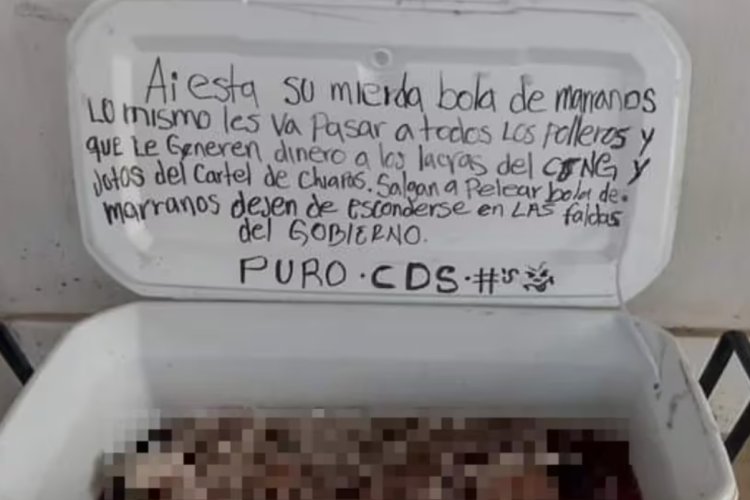 Ai esta su mierda bola de marranos
LO mismo les va pasar a todos Los polleros y
que Le Generen dinero a los lacras del CJNG y
Jotos del Cartel de Chiapas. Salgan a Pelear bola de.
marranos dejen de esconderse en LAS faldas
del GOBIERNO.
PURO.CDS.#